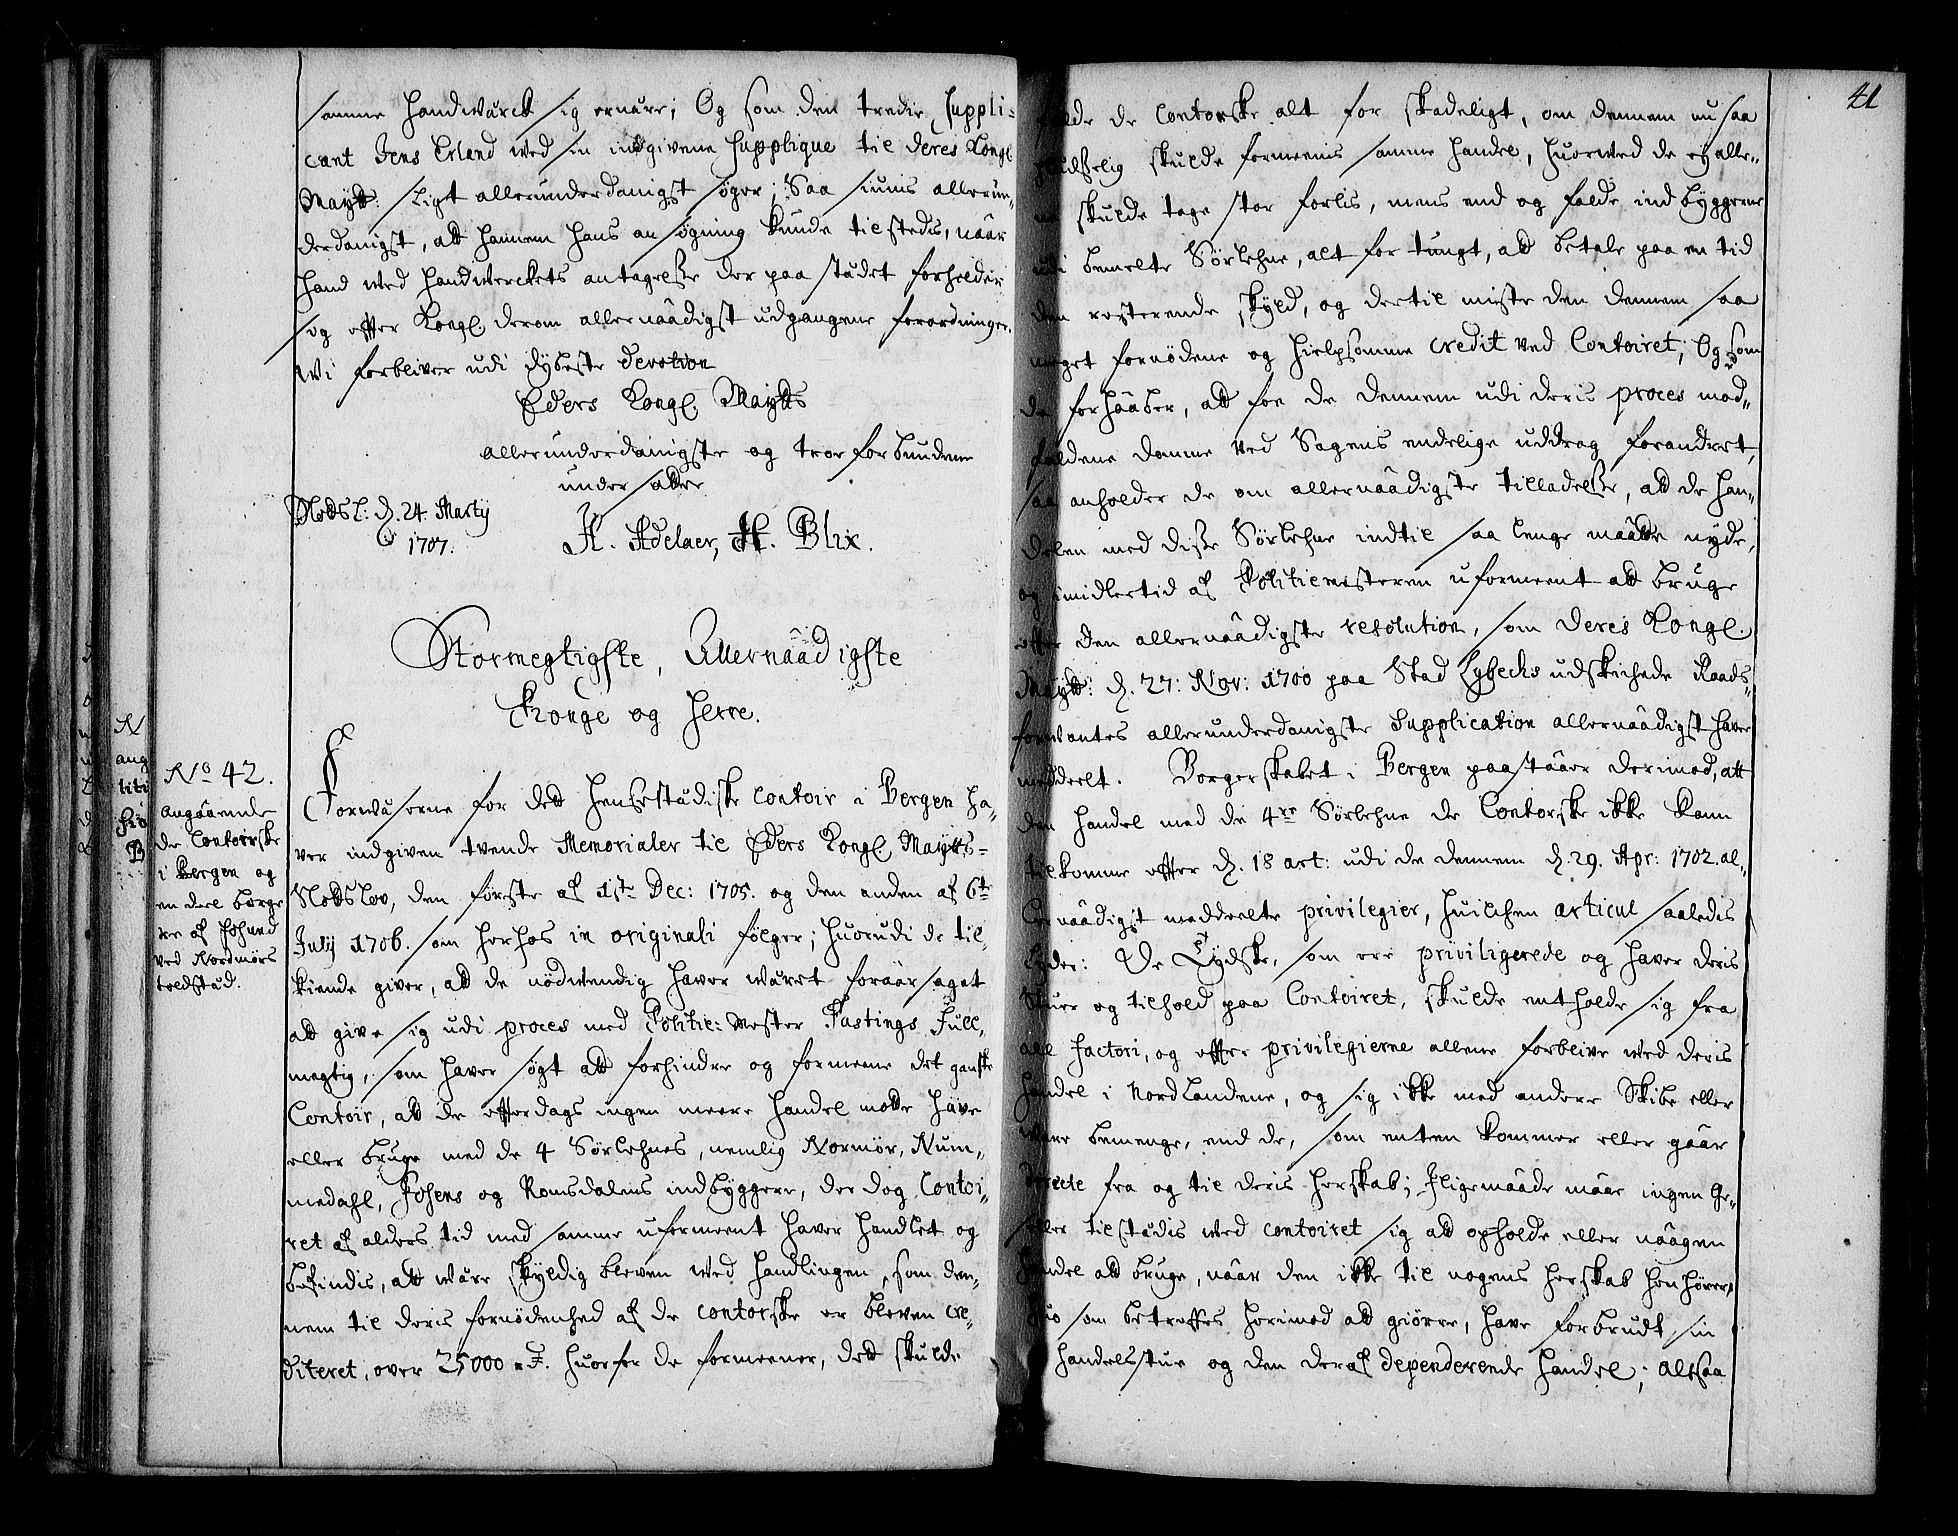 samme Handwærck sig ernære; Og som den tredie suppli-
cant Jens Erland wed sin indgivene supplique til Deres Kongl
Maytt: ligt allerunderdanigst søger; Saa siunis allerun-
derdanigst, att hannem hans ansøgning kunde tilstedis, naar
hand wed handwerckets antagelsse der paa stædet forholder
sig effter Kongl. derom allernaadigst udgangene forordninger.
Wi forbliver udi dybeste devotion
Eders Kongl. Maytts
allerunderdanigste og troe forbundene
undersatter
Slodsl: d. 24. Marty
1707.
H. Adelaer, H. Blix.
Stormegtigste, Allernaadigste
Konge og Herre.
No 42.
angaaende
de Contorske
i Bergen og
en deel borge
re af Fossund
ved Nordmørs
toldstæd.
Forwaserne for det HenSestædiske Contoir i Bergen ha-
ver indgiven tvende Memorialer til Eders Kongl Maytts-
Slodslov, den første af 1ste Dec: 1705. og den anden af 6te
July 1706. som herhos in originali følger; huorudi de til-
kiende giver, att de nødwendig haver wæret foraarsaget
att give sig udi proces med Politie: Mester Fastings Full-
megtig, som haver søgt att forhindre og formeene det gantske
Contoir, att de effterdags ingen meere handel motte have
eller bruge med de 4 Sørlehnes, nemlig Normør, Num-
medahl, Fosens og Romsdalens indbyggere, der dog Contoi-
ret af alders tid med samme uformeent haver handlet og
befindis, att være skyldig bleven wed handlingen, som den-
nem til deris fornødenhed af de contorske er bleven cre-
diteret, over 25000 rd. huorfor de formeener, det skulde
41
falde de Contorske alt for skadeligt, om dennem nu saa
hastelig skulde formeenis samme handel, huorved de ey alle-
ne skulde tage stor forlis, mens end og falde indbyggerne
udi bemelte Sørlehne, alt for tungt, att betale paa en tid
den resterende skyld, og dertil miste den dennem saa
meget fornødene og hielpsomme credit ved Contoiret; Og som
de forhaaber, att foe de dennem udi deris proces mod-
faldene domme ved Sagens endelige uddrag forandret,
saa anholder de om allernaadigste tilladelsse, att de han-
delen med disse Sørlehne indtil saa lenge maatte nyde,
og imidlertid af Politiemesteren uformeent att bruge
effter den allernaadigste resolution, som Deres Kongl
Maytt: d. 27: Nov: 1700 paa Stad Lybechs udskichede Raads-
forwantes allerunderdanigste Supplication allernaadigst haver
meddeelt. Borgerskabet i Bergen paastaaer derimod, att
den handel med de 4re Sørlehne de Contorske ikke kom
tilkomme effter d. 18 art: udi de dennem d. 29. Apr: 1702. al-
lernaadigst meddeelte privilegier, huilchen articul saaledis
lyder: De Tydske, som ere priviligerede og haver deris
Stuer og tilhold paa Contoiret, skulde entholde sig fra
all factori, og effter privilegierne allene forblive wed deris
handel i Nordlandene, og sig ikke med andere Skibe eller
ware bemenge, end de, som enten kommer eller gaar
directe fra og til deris herskab; Iligemaade maae ingen Ge-
seller tilstædis wed contoiret sig att opholde eller naagen
handel att bruge, naar den ikke til nogens herskab henhører,
huo som betreffes herimod att giørre, have forbrudt sin
handelsstue og den deraf dependerende handel; Altsaa